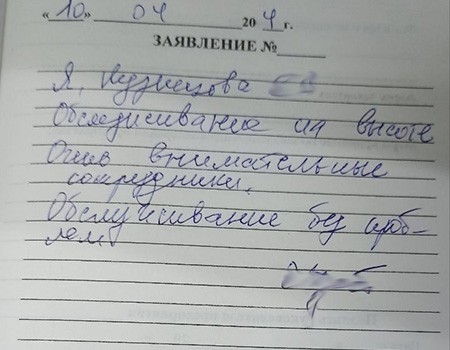 «10» 04 20 г.
ЗАЯВЛЕНИЕ №
Я, Кузнецова
Обслуживание на высоте
Очень внимательные
сотрудники.
Обслуживание без проб-
лем